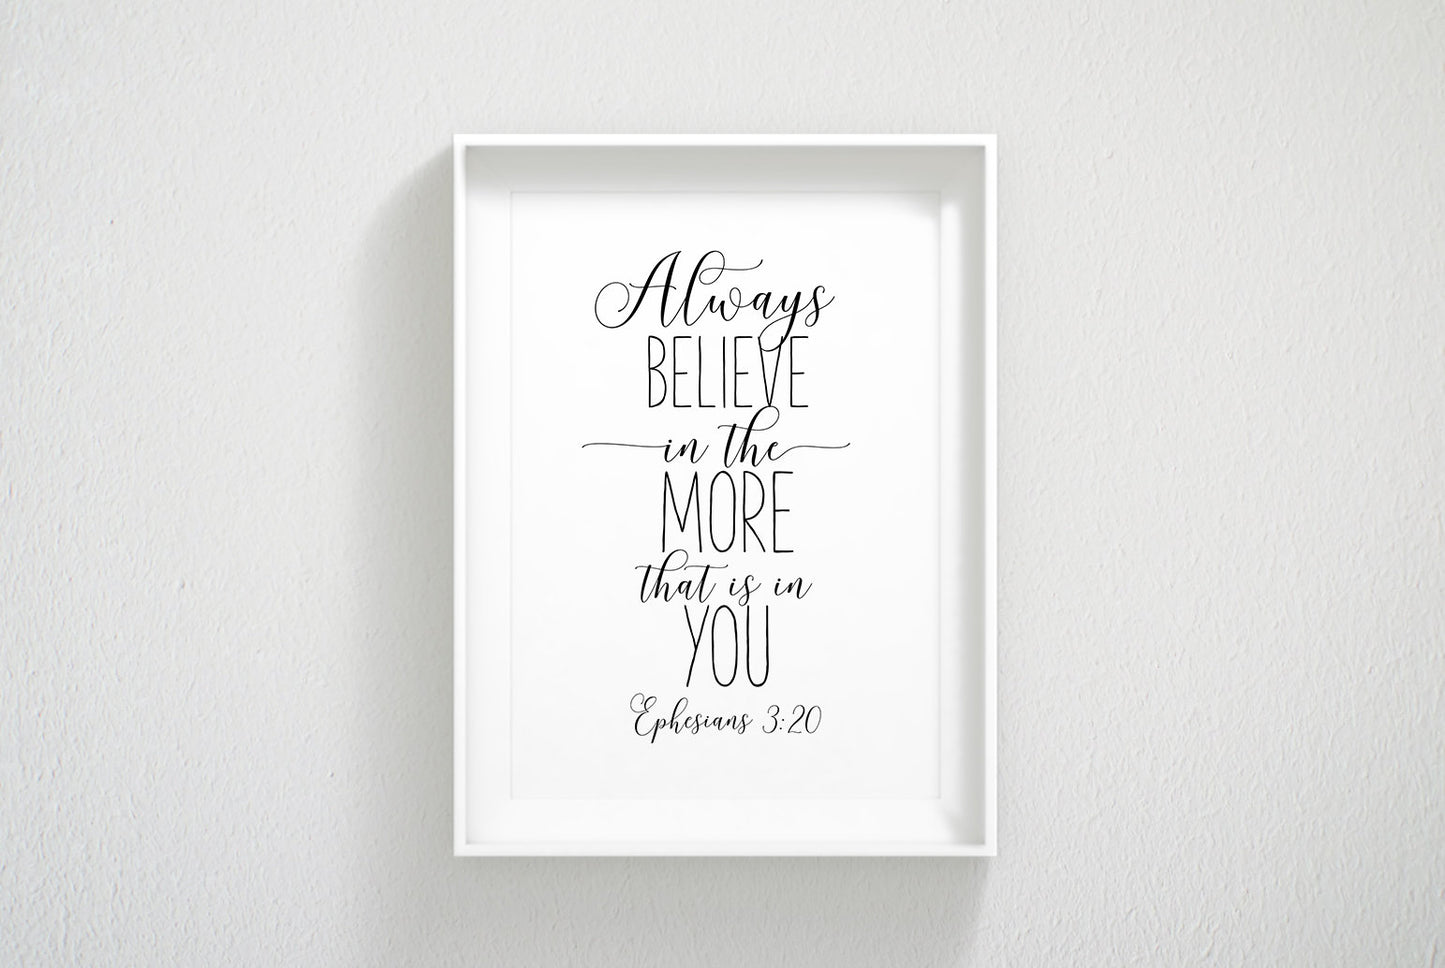 Always
BELIEVE
in the
MORE
that is in
YOU
Ephesians 3:20